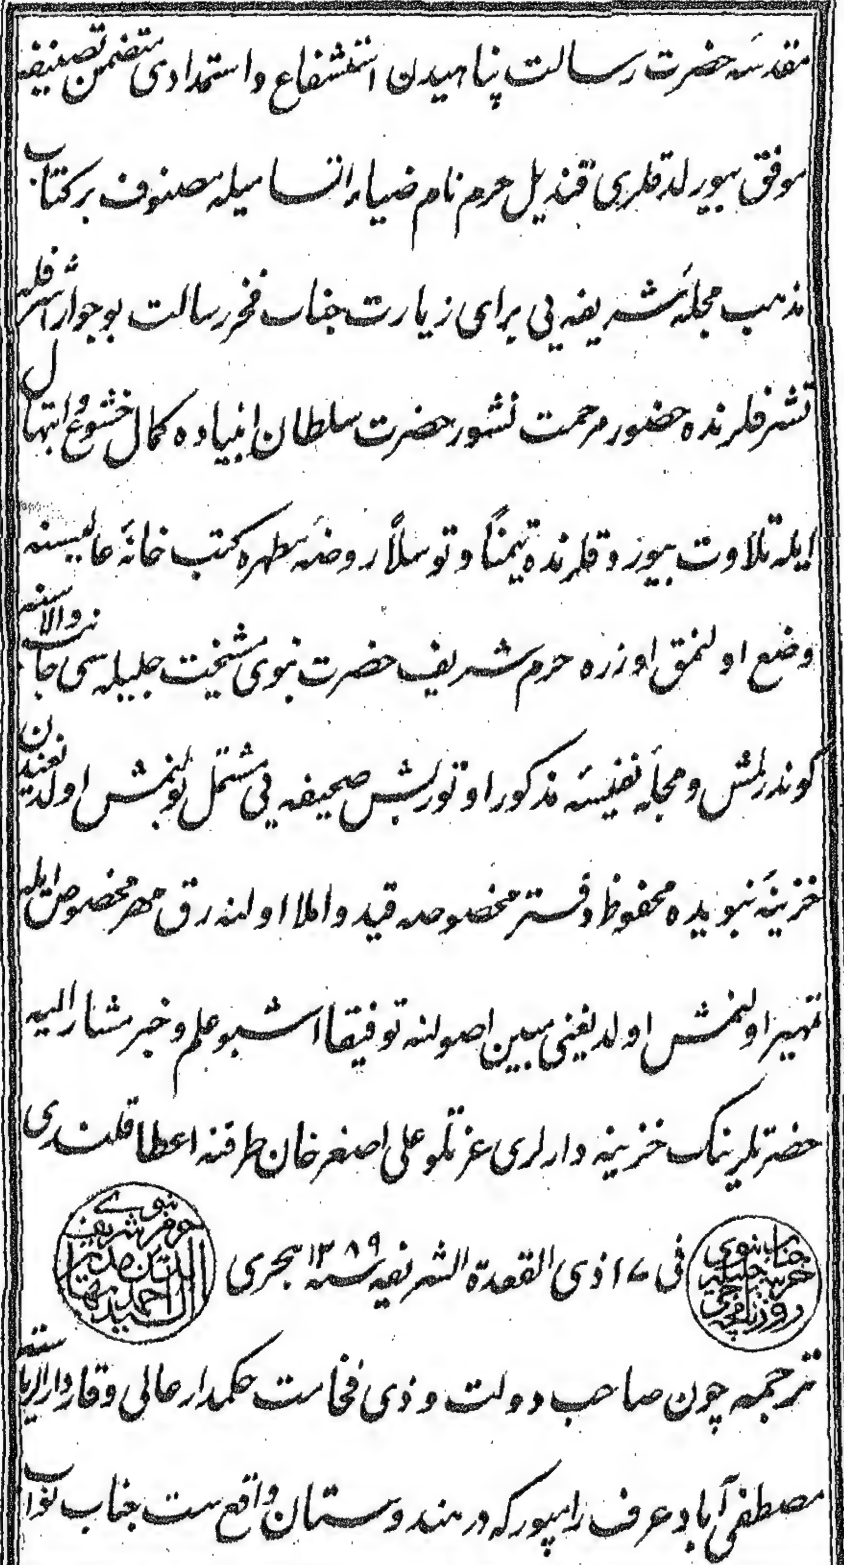 مقدسه حضرت رسالت پناهیدن استشفاع و استمدادی متضمن تصنیفه
موفق بیورلدقلری قندیل حرم نام ضیاء اتسامیله مصنوف بر کتاب
مذهب مجلهٔ شریفه یی برای زیارت جناب فخر رسالت بو جوار اشرفله
تشرفلرنده حضور مرحمت نشور حضرت سلطان انبیاده کمال خشوع و ابتهال
ایله تلاوت بیوردقلرنده تیمناً و توسلاً روضهٔ مطهره کتب خانهٔ عالیسنه
وضع اولنمق اوزره حرم شریف حضرت نبوی مشیخت جلیله سی جانب والاسنه
کوندرلمش و مجلهٔ نفیسهٔ مذکور اوتوز بش صحیفه یی مشتمل بولنمش اولدیغندن
خزینهٔ نبویده محفوظ دفتر مخصوصه قید و املا اولنه رق مهر مخصوص ایله
تمهیر اولنمش اولدیغنی مبین اصولنه توفیقا اشبو علم و خبر مشار الیه
حضرتلرینک خزینه دارلری عزتلو علی اصغر خان طرفنه اعطا قلندی
جناب نبوی خزینه جلیله روزنامچه جی
فی ١٧ ذی القعدة الشریفه سنه ١٢٨٩ هجری
نبوی حرم شریف السید احمد
ترجمه چون صاحب دولت و ذی فخامت حکمدار عالی وقار دار الریاسته
مصطفی آباد عرف رامپور که در هندوستان واقع ست جناب نواب